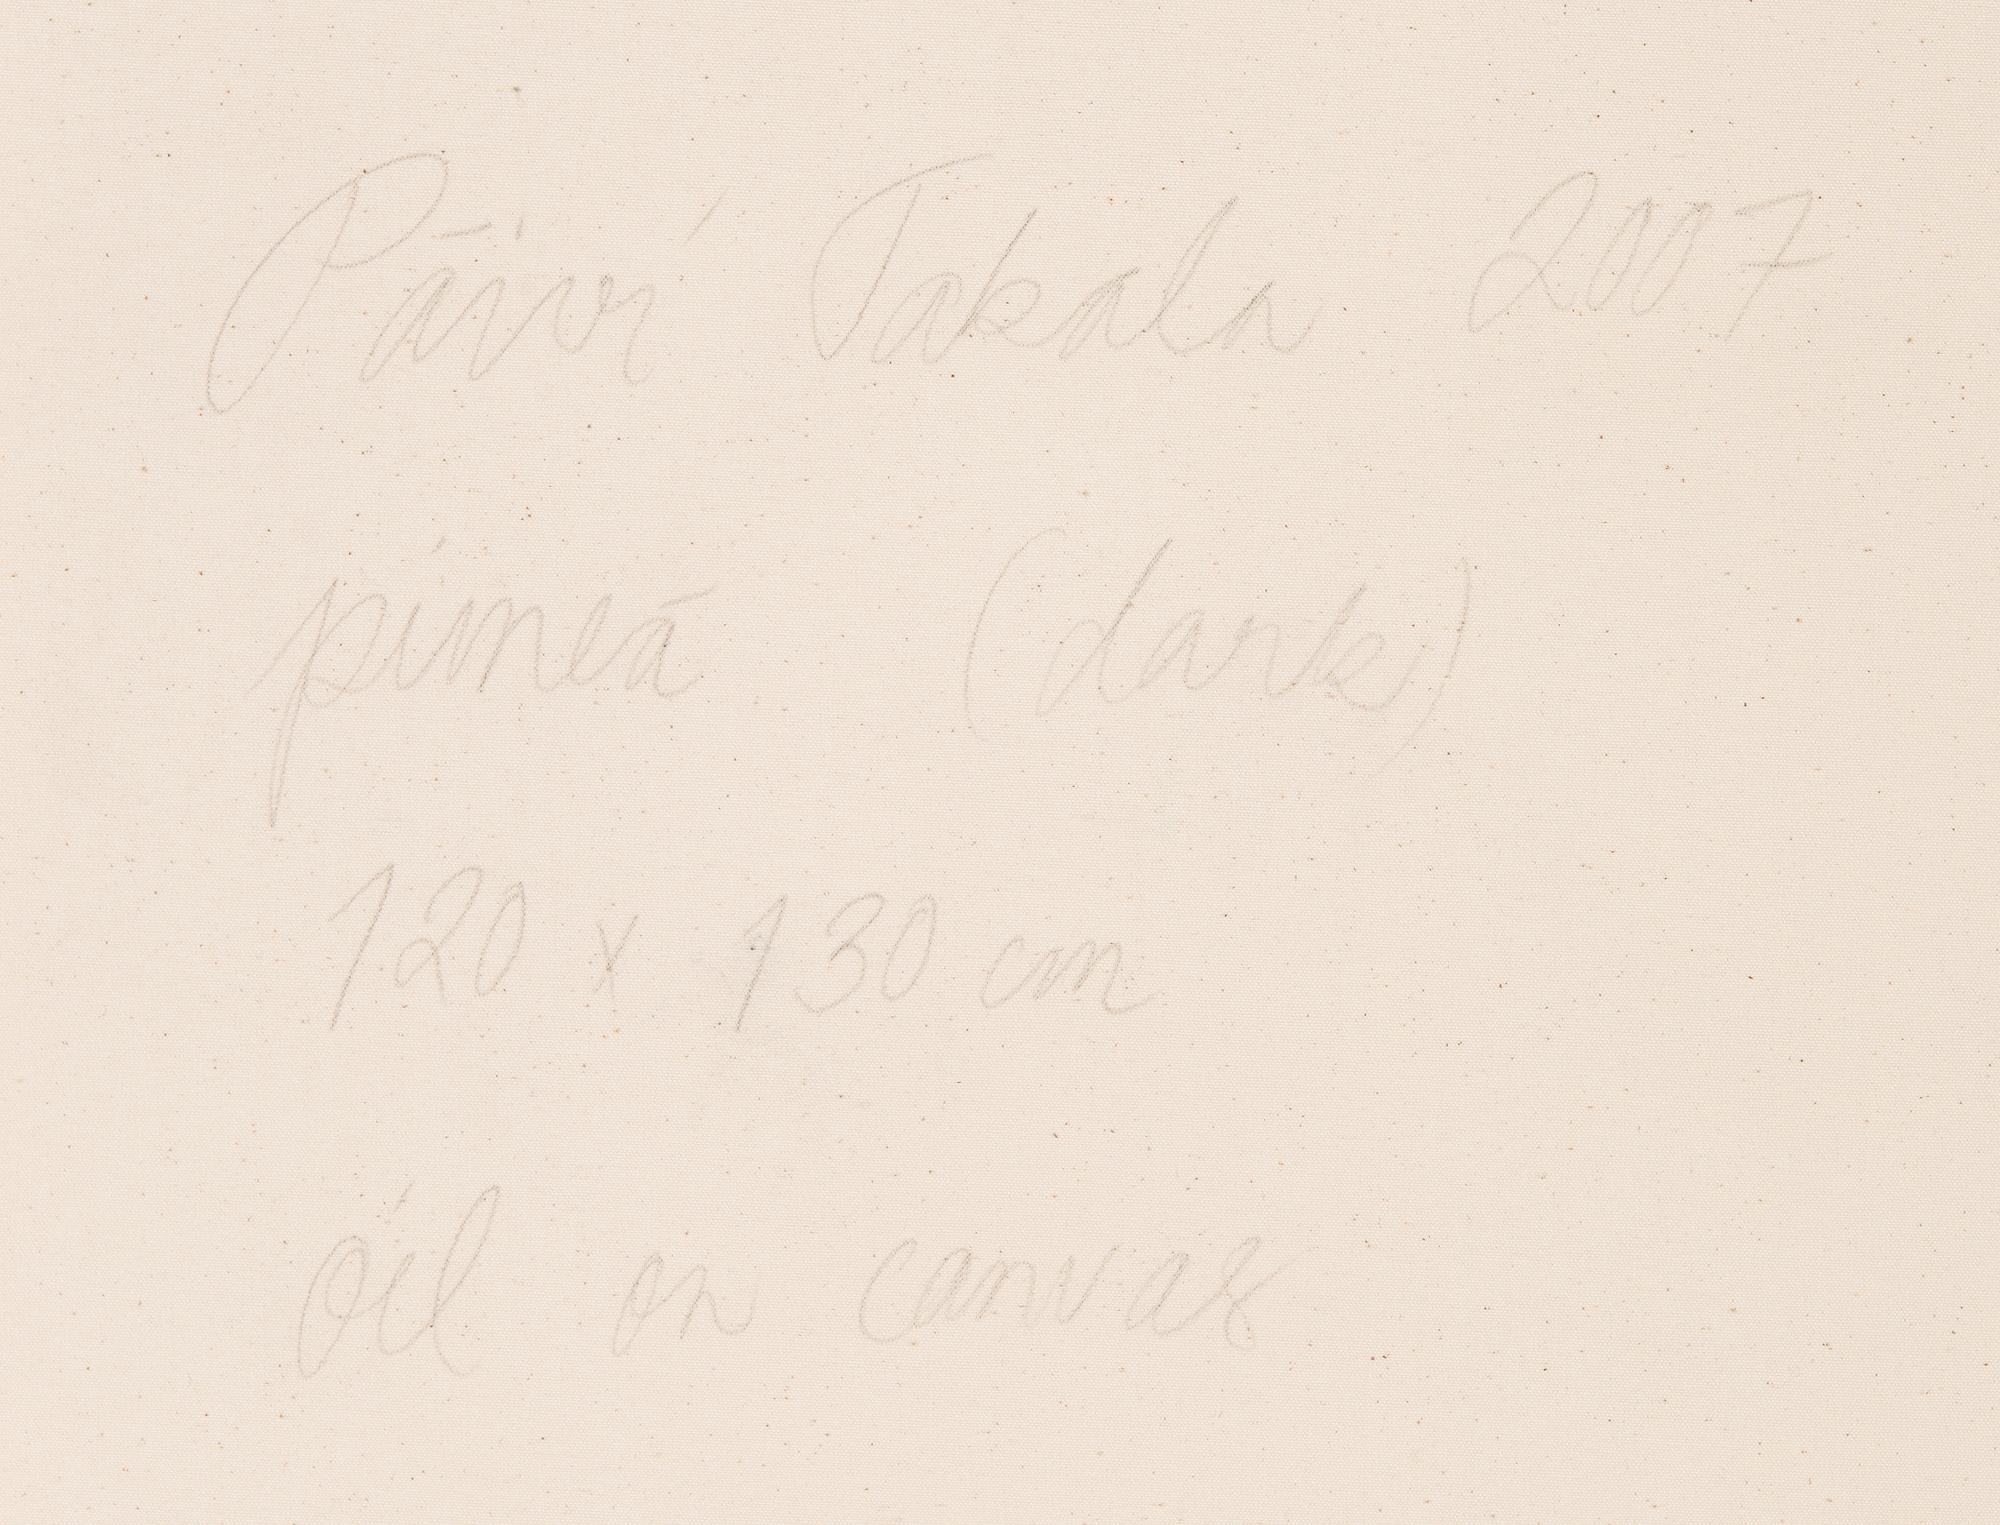 Päivi Takala 2007
pimeä (dark)
120 x 130 cm
oil on canvas